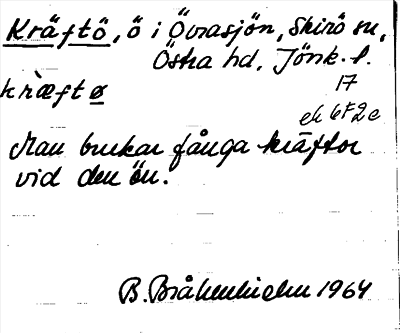 Kräftö, ö i Övrasjön, Skirö sn,
Östra hd, Jönk. l.
kræ̀ftø
17
ek 6F2e
Man brukar fånga kräftor
vid den ön.
B. Bråkenhielm 1964